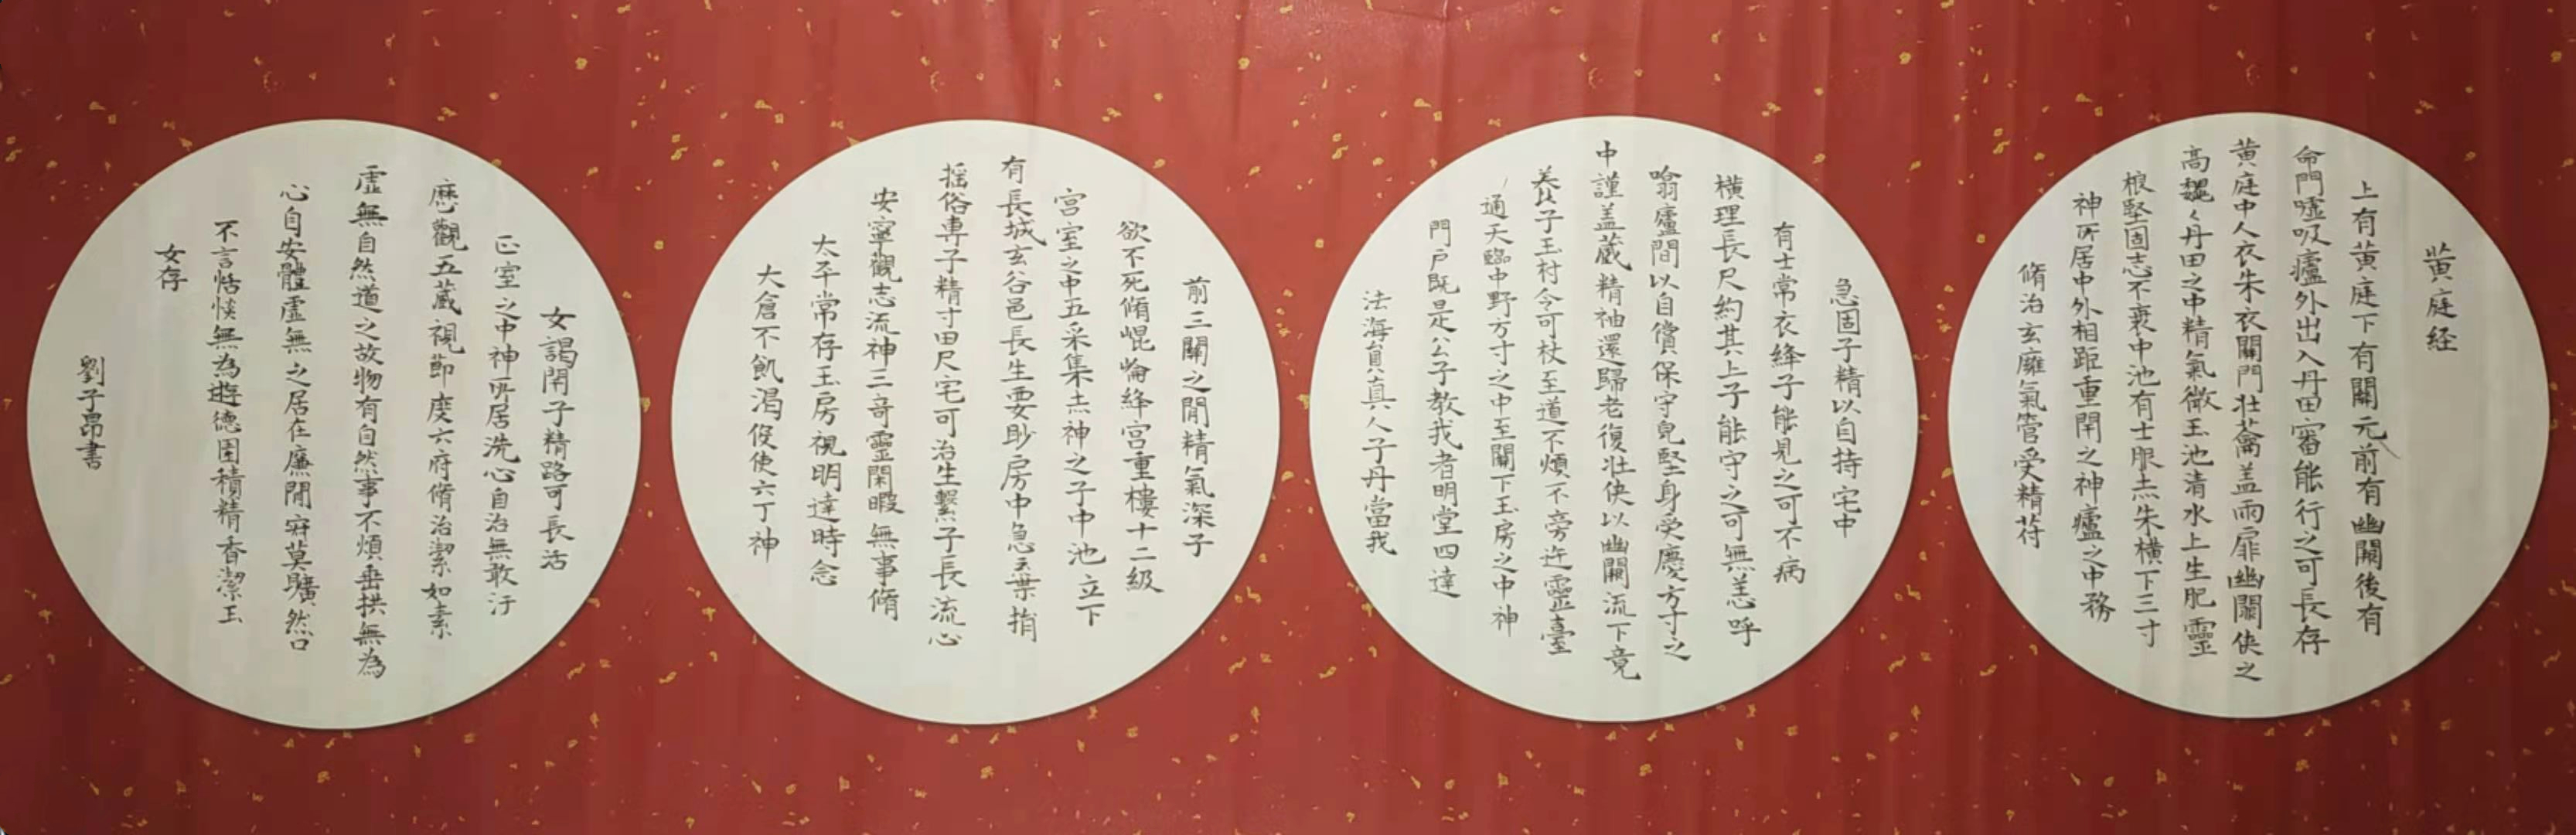 黄庭経
上有黄庭下有關元前有幽闕後有
命門噓吸廬外出入丹田審能行之可長存
黄庭中人衣朱衣關門壮蘥盖兩扉幽闕侠之
高巍〻丹田之中精氣微玉池清水上生肥靈
根堅固志不衰中池有士服赤朱横下三寸
神所居中外相距重閇之神廬之中務
脩治玄㢕氣管受精苻
急固子精以自持宅中
有士常衣絳子能見之可不病
横理長尺約其上子能守之可無恙呼
噏廬間以自償保守皃堅身受慶方寸之
中謹盖蔵精神還歸老復壮侠以幽闕流下竟
養子玉树令可杖至道不煩不旁迕靈臺
通天臨中野方寸之中至關下玉房之中神
門戸既是公子教我者明堂四達
法海員真人子丹當我
前三關之間精氣深子
欲不死脩崐崘絳宫重樓十二級
宫室之中五采集赤神之子中池立下
有長城玄谷邑長生要眇房中急棄捐
摇俗専子精寸田尺宅可治生繫子長流心
安寧觀志流神三竒靈閑暇無事脩
太平常存玉房視明達時念
大倉不飢渴伇使六丁神
女謁閇子精路可長活
正室之中神所居洗心自治無敢汙
歷觀五蔵視節度六府脩治潔如素
虚無自然道之故物有自然事不煩垂拱無為
心自安體虚無之居在廉間寂莫曠然口
不言恬惔無為遊德園積精香潔玉
女存
劉子昂書